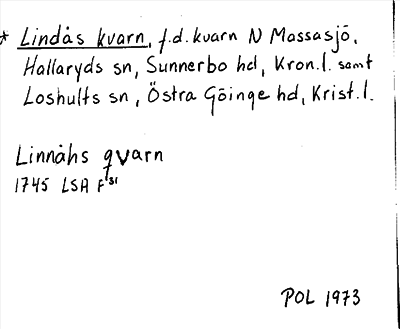 * Lindås kvarn, f.d. kvarn N Massasjö,
Hallaryds sn, Sunnerbo hd, Kron.l. samt
Loshults sn, Östra Göinge hd, Krist.l.
Linnåhs qvarn
1745 LSA F51
POL 1973